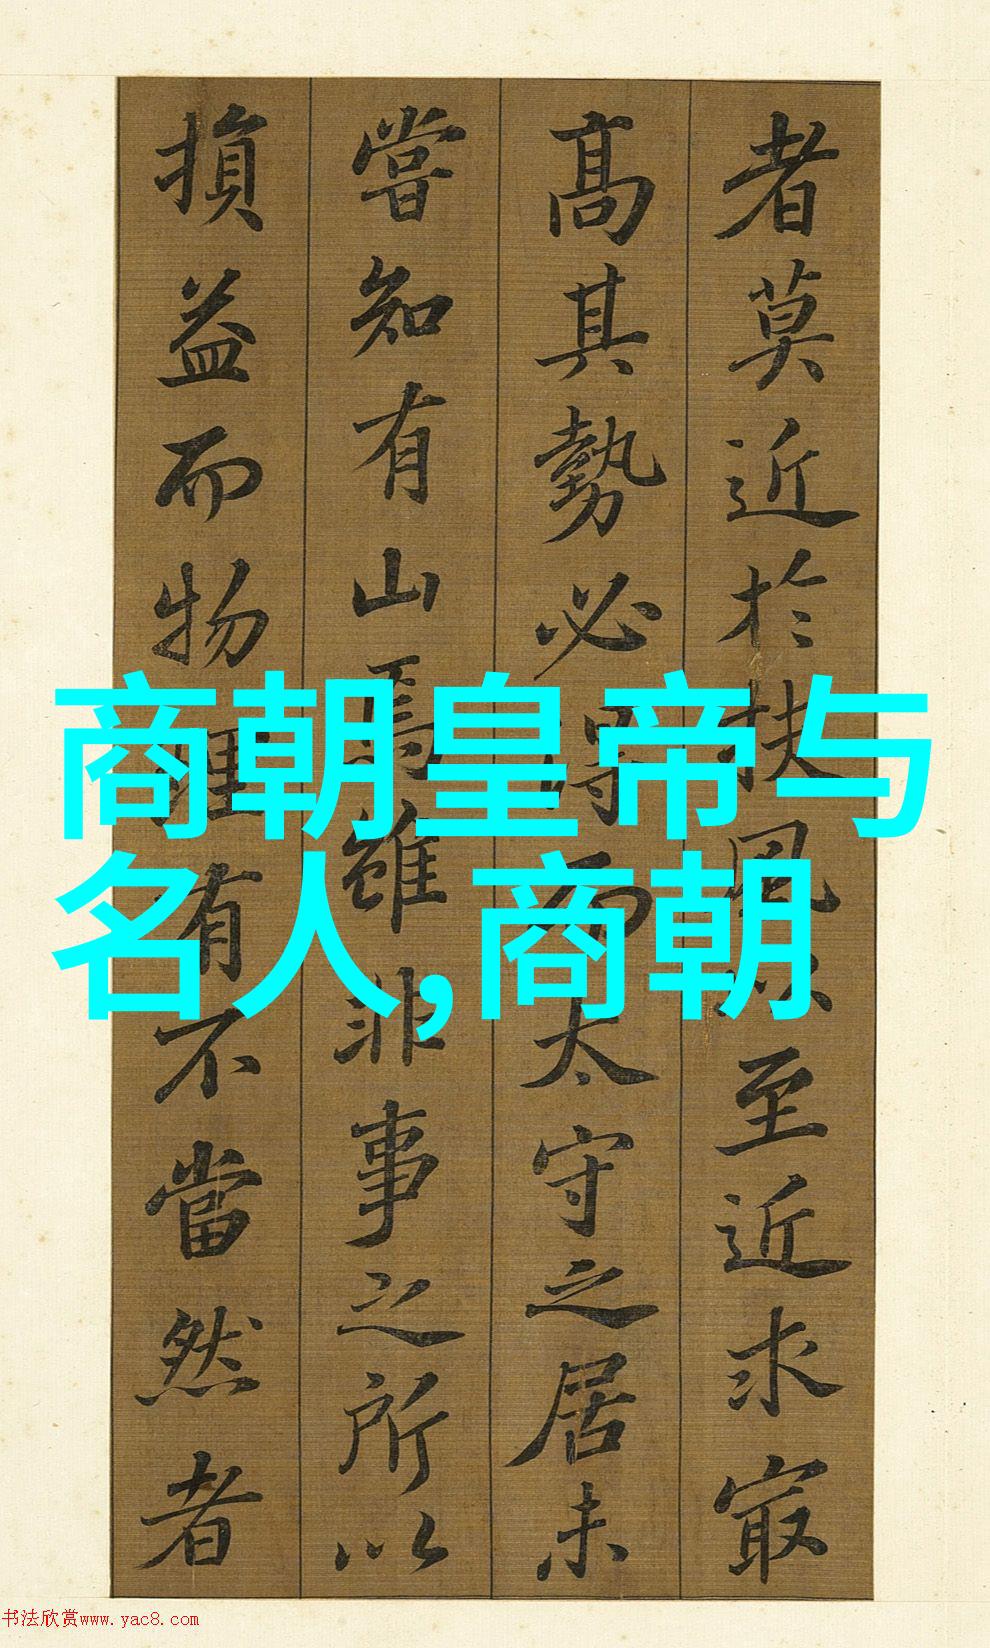 者莫近於扶風以至近求㝡
高其勢必得而太守之居未
嘗知有山焉雖非事之所以
損益而物理有不當然者
商朝皇帝与
名人,商朝
书法欣赏www.yac8.com